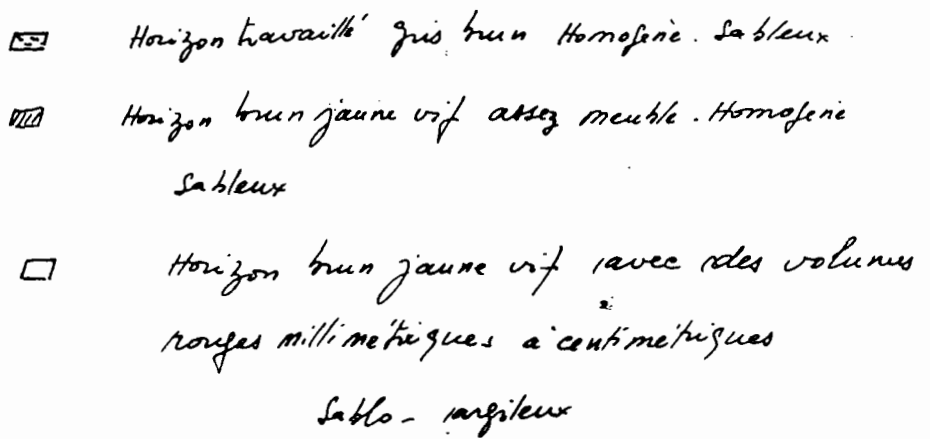 Horizon travaillé gris brun Homogène. Sableux
Horizon brun jaune vif assez meuble. Homogène
Sableux
Horizon brun jaune vif avec des volumes
rouges millimétriques à centimétriques
Sablo-argileux